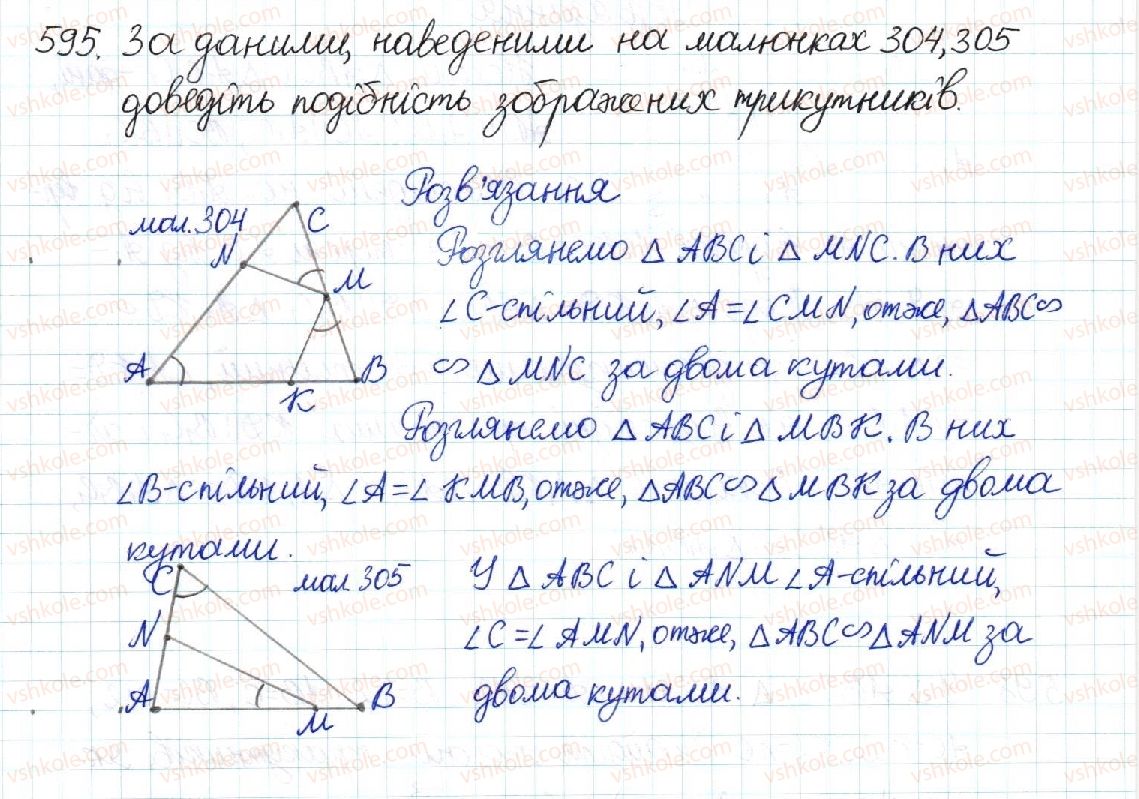 595. За даними, наведеними на малюнках 304, 305
доведіть подібність зображених трикутників.
Розв'язання
мал. 304
C
N
M
A
K
B
Розглянемо △ ABC і △ MNC. В них
∠C-спільний, ∠A = ∠CMN, отже, △ABC∽
∽ △ MNC за двома кутами.
Розглянемо △ ABC і △ MBK. В них
∠B-спільний, ∠A = ∠KMB, отже, △ABC∽△MBK за двома
кутами.
мал. 305
C
N
A
M
B
У △ ABC і △ ANM ∠A-спільний,
∠C = ∠AMN, отже, △ABC∽△ANM за
двома кутами.